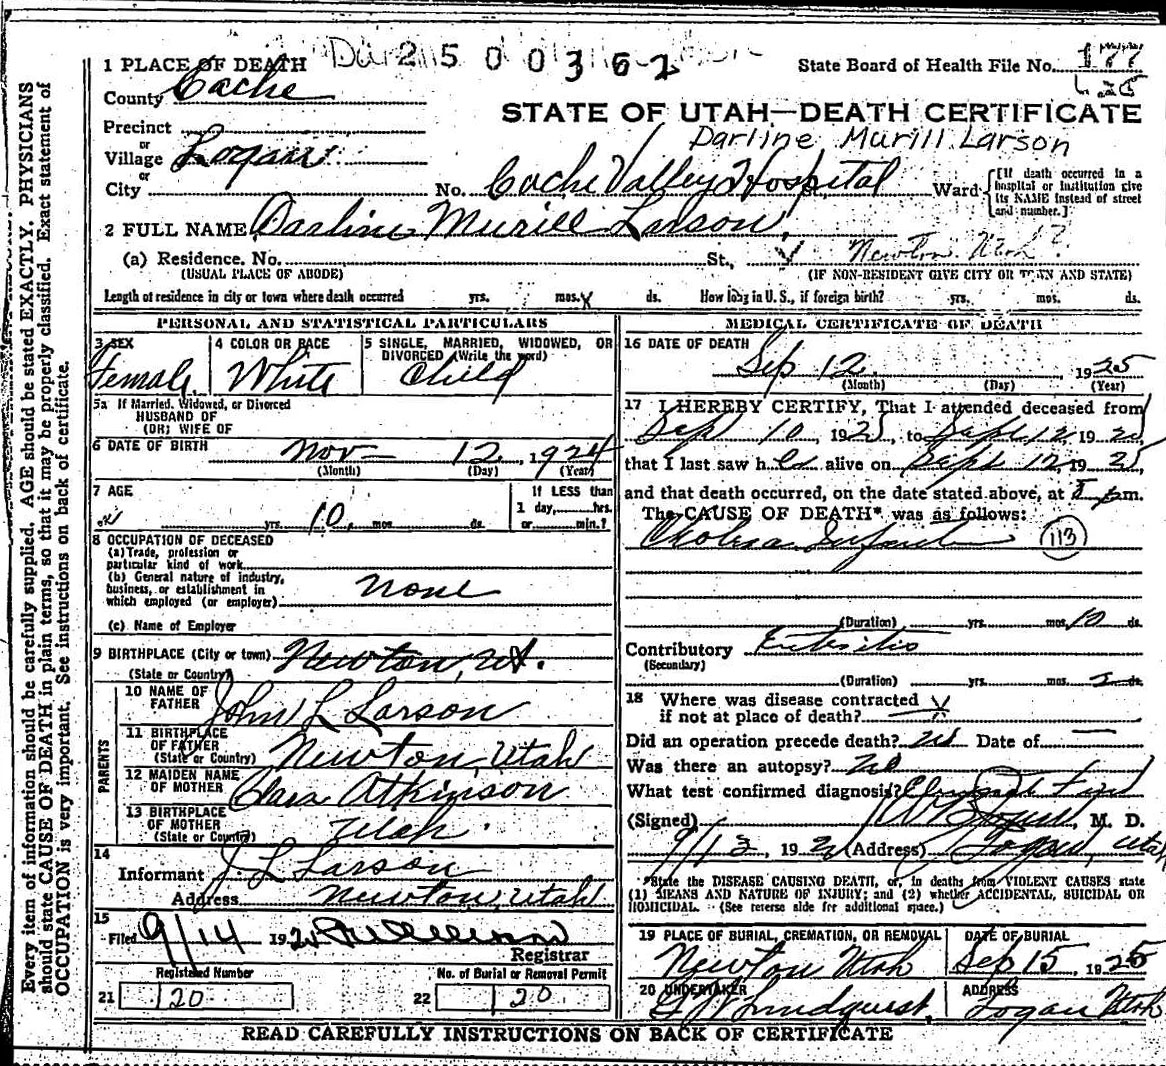 2500362
1 PLACE OF DEATH
State Board of Health File No. 177
County Cache
STATE OF UTAH—DEATH CERTIFICATE
Precinct
or
Darline Murill Larson
Village Logan
or
City
No. Cache Valley Hospital St., Ward
[If death occurred in a hospital or institution give its NAME instead of street and number.]
2 FULL NAME Darline Murill Larson
(a) Residence. No. St., Newton Utah?
(USUAL PLACE OF ABODE) (IF NON-RESIDENT GIVE CITY OR TOWN AND STATE)
Length of residence in city or town where death occurred yrs. mos. ds. How long in U. S., if foreign birth? yrs. mos. ds.
PERSONAL AND STATISTICAL PARTICULARS
3 SEX
Female
4 COLOR OR RACE
White
5 SINGLE, MARRIED, WIDOWED, OR DIVORCED (Write the word)
Child
5a If Married, Widowed, or Divorced
HUSBAND OF
(OR) WIFE OF
6 DATE OF BIRTH Nov 12, 1924
(Month) (Day) (Year)
7 AGE
yrs. 10 mos. ds.
If LESS than
1 day, hrs.
or min.?
8 OCCUPATION OF DECEASED
(a) Trade, profession or
particular kind of work
(b) General nature of industry,
business, or establishment in
which employed (or employer) None
(c) Name of Employer
9 BIRTHPLACE (City or town) Newton, Ut.
(State or Country)
PARENTS
10 NAME OF
FATHER John L Larson
11 BIRTHPLACE
OF FATHER
(State or Country) Newton, Utah
12 MAIDEN NAME
OF MOTHER Clara Atkinson
13 BIRTHPLACE
OF MOTHER
(State or Country) Utah.
14
Informant J. L Larson
Address Newton Utah
15
Filed 9/14 192
Registrar
Registered Number
21 20
No. of Burial or Removal Permit
22 20
MEDICAL CERTIFICATE OF DEATH
16 DATE OF DEATH
Sep 12. 1925
(Month) (Day) (Year)
17 I HEREBY CERTIFY, That I attended deceased from
Sept 10, 1925, to Sept 12 1925,
that I last saw her alive on Sept 12 1925,
and that death occurred, on the date stated above, at m.
The CAUSE OF DEATH* was as follows:
Cholera Infantum 113
(Duration) yrs. mos. 10 ds.
Contributory Enteritis
(Secondary)
(Duration) yrs. mos. ds.
18 Where was disease contracted
if not at place of death?
Did an operation precede death? No Date of —
Was there an autopsy? No
What test confirmed diagnosis?
(Signed) M. D.
9/13, 192 (Address) Logan, Utah
*State the DISEASE CAUSING DEATH, or, in deaths from VIOLENT CAUSES state
(1) MEANS AND NATURE OF INJURY; and (2) whether ACCIDENTAL, SUICIDAL OR
HOMICIDAL. (See reverse side for additional space.)
19 PLACE OF BURIAL, CREMATION, OR REMOVAL
Newton Utah
DATE OF BURIAL
Sep 15, 1925
20 UNDERTAKER
Lundquist
ADDRESS
Logan Utah
READ CAREFULLY INSTRUCTIONS ON BACK OF CERTIFICATE
Every item of information should be carefully supplied. AGE should be stated EXACTLY. PHYSICIANS
should state CAUSE OF DEATH in plain terms, so that it may be properly classified. Exact statement of
OCCUPATION is very important. See instructions on back of certificate.